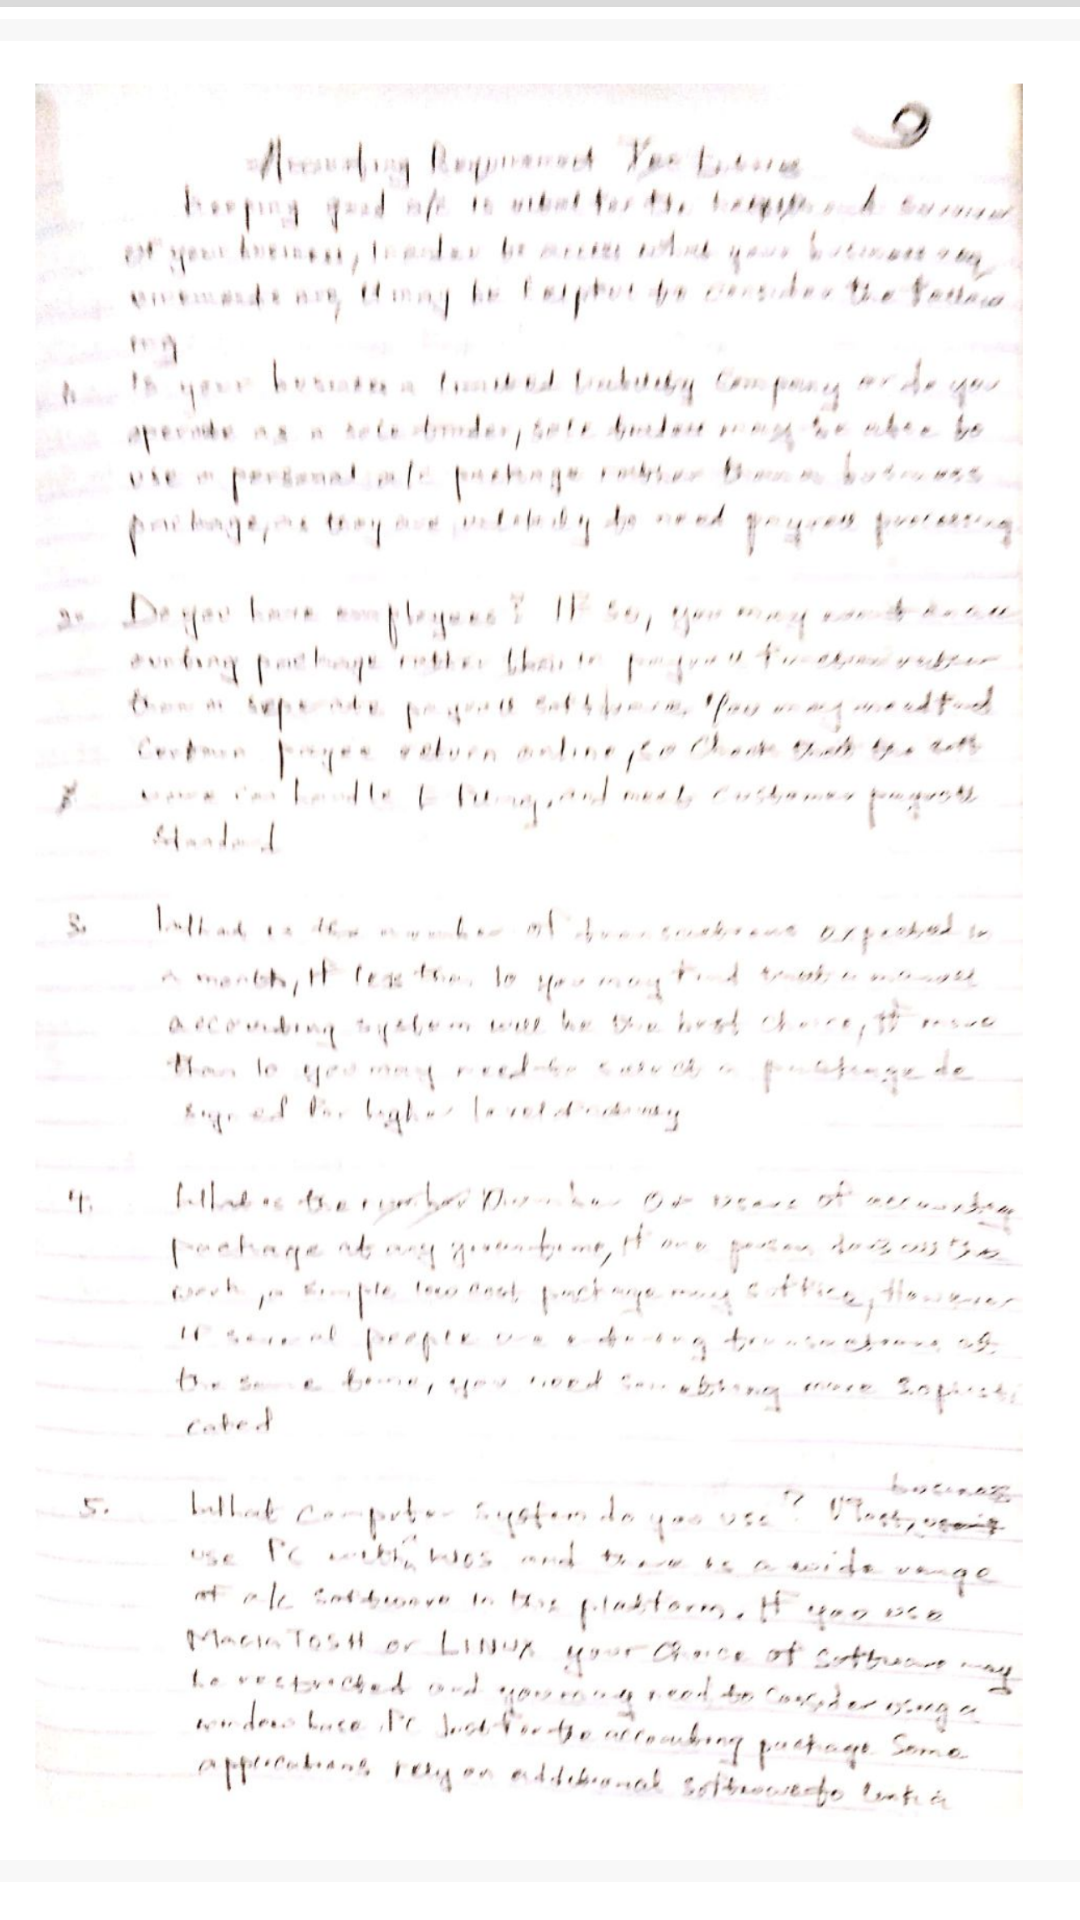 9
Accounting Requirement
Keeping good a/c is vital for the and survival
of your business, In order to access what your business req
uirements are, It may be helpful to consider the follow
ing
1. Is your business a limited liability Company or do you
operate as a sole trader, sole traders may be able to
use a personal a/c package rather than a business
package, as they are unlikely to need payroll processing
2. Do you have employees? If so, you may want an acc
ounting package rather than in payroll function rather
than a seperate payroll software. You may need find
Certain payee return online, so Check that the soft
ware can handle filing, and meet customer payroll
Standard
3. What is the number of transactions expected in
a month, If less than 10 you may find that a manual
accounting system will be the best choice, If more
than 10 you may need to a package de
signed for higher level
4. What is the number Number Or users of accounting
package at any given time, If one person does all the
work, a simple low cost package may suffice, However
If several people are entering transactions at
the same time, you need something more Sophisti
cated
business
5. What Computer system do you use? Most,
use PC with WOS and there is a wide range
of a/c software in this platform. If you use
MacinTOSH or LINUX your Choice of Software may
be restricted and you may need to Consider using a
window base PC Just for the accounting package. Some
applications rely on additional software to link a